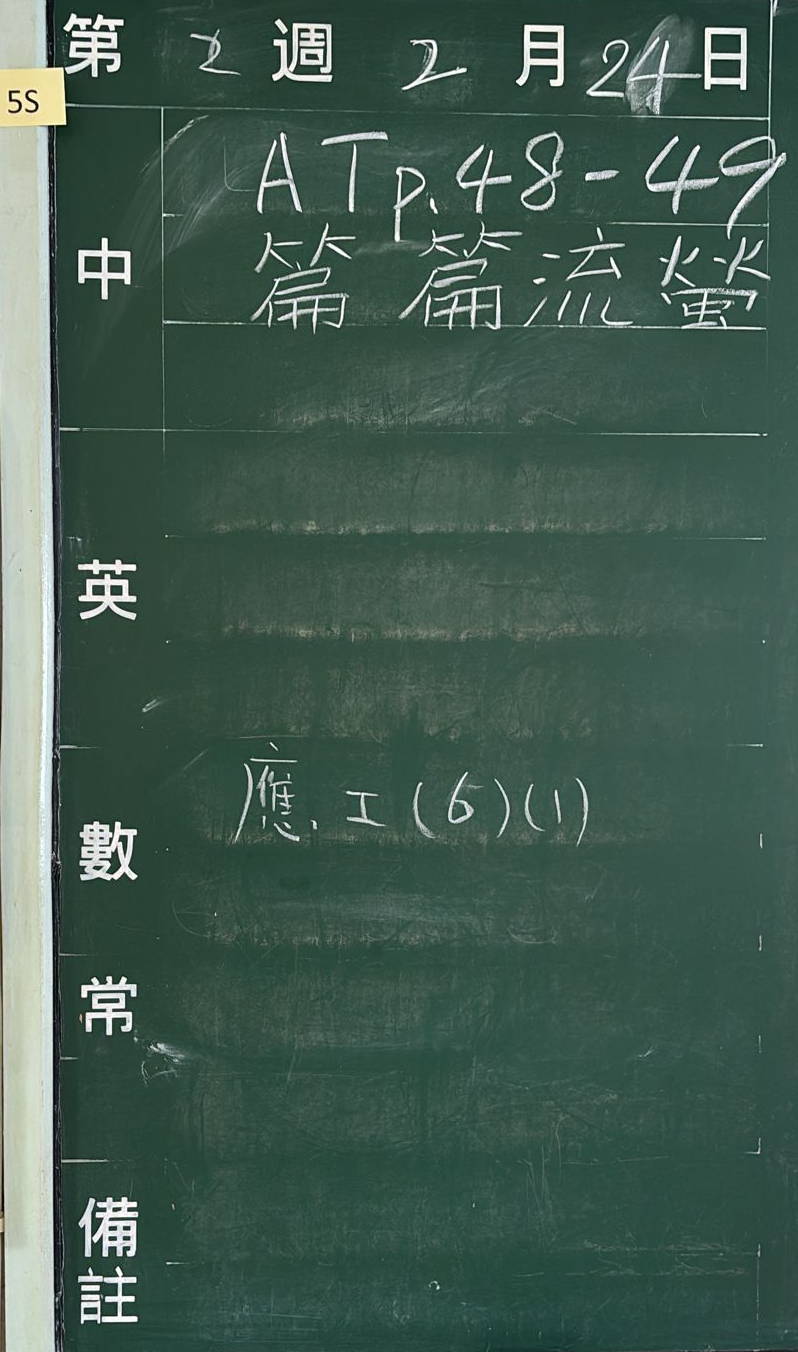 第 2 週 2 月 24 日
5S
中
AT p.48-49
篇篇流螢
英
數
應. I (6)(1)
常
備註